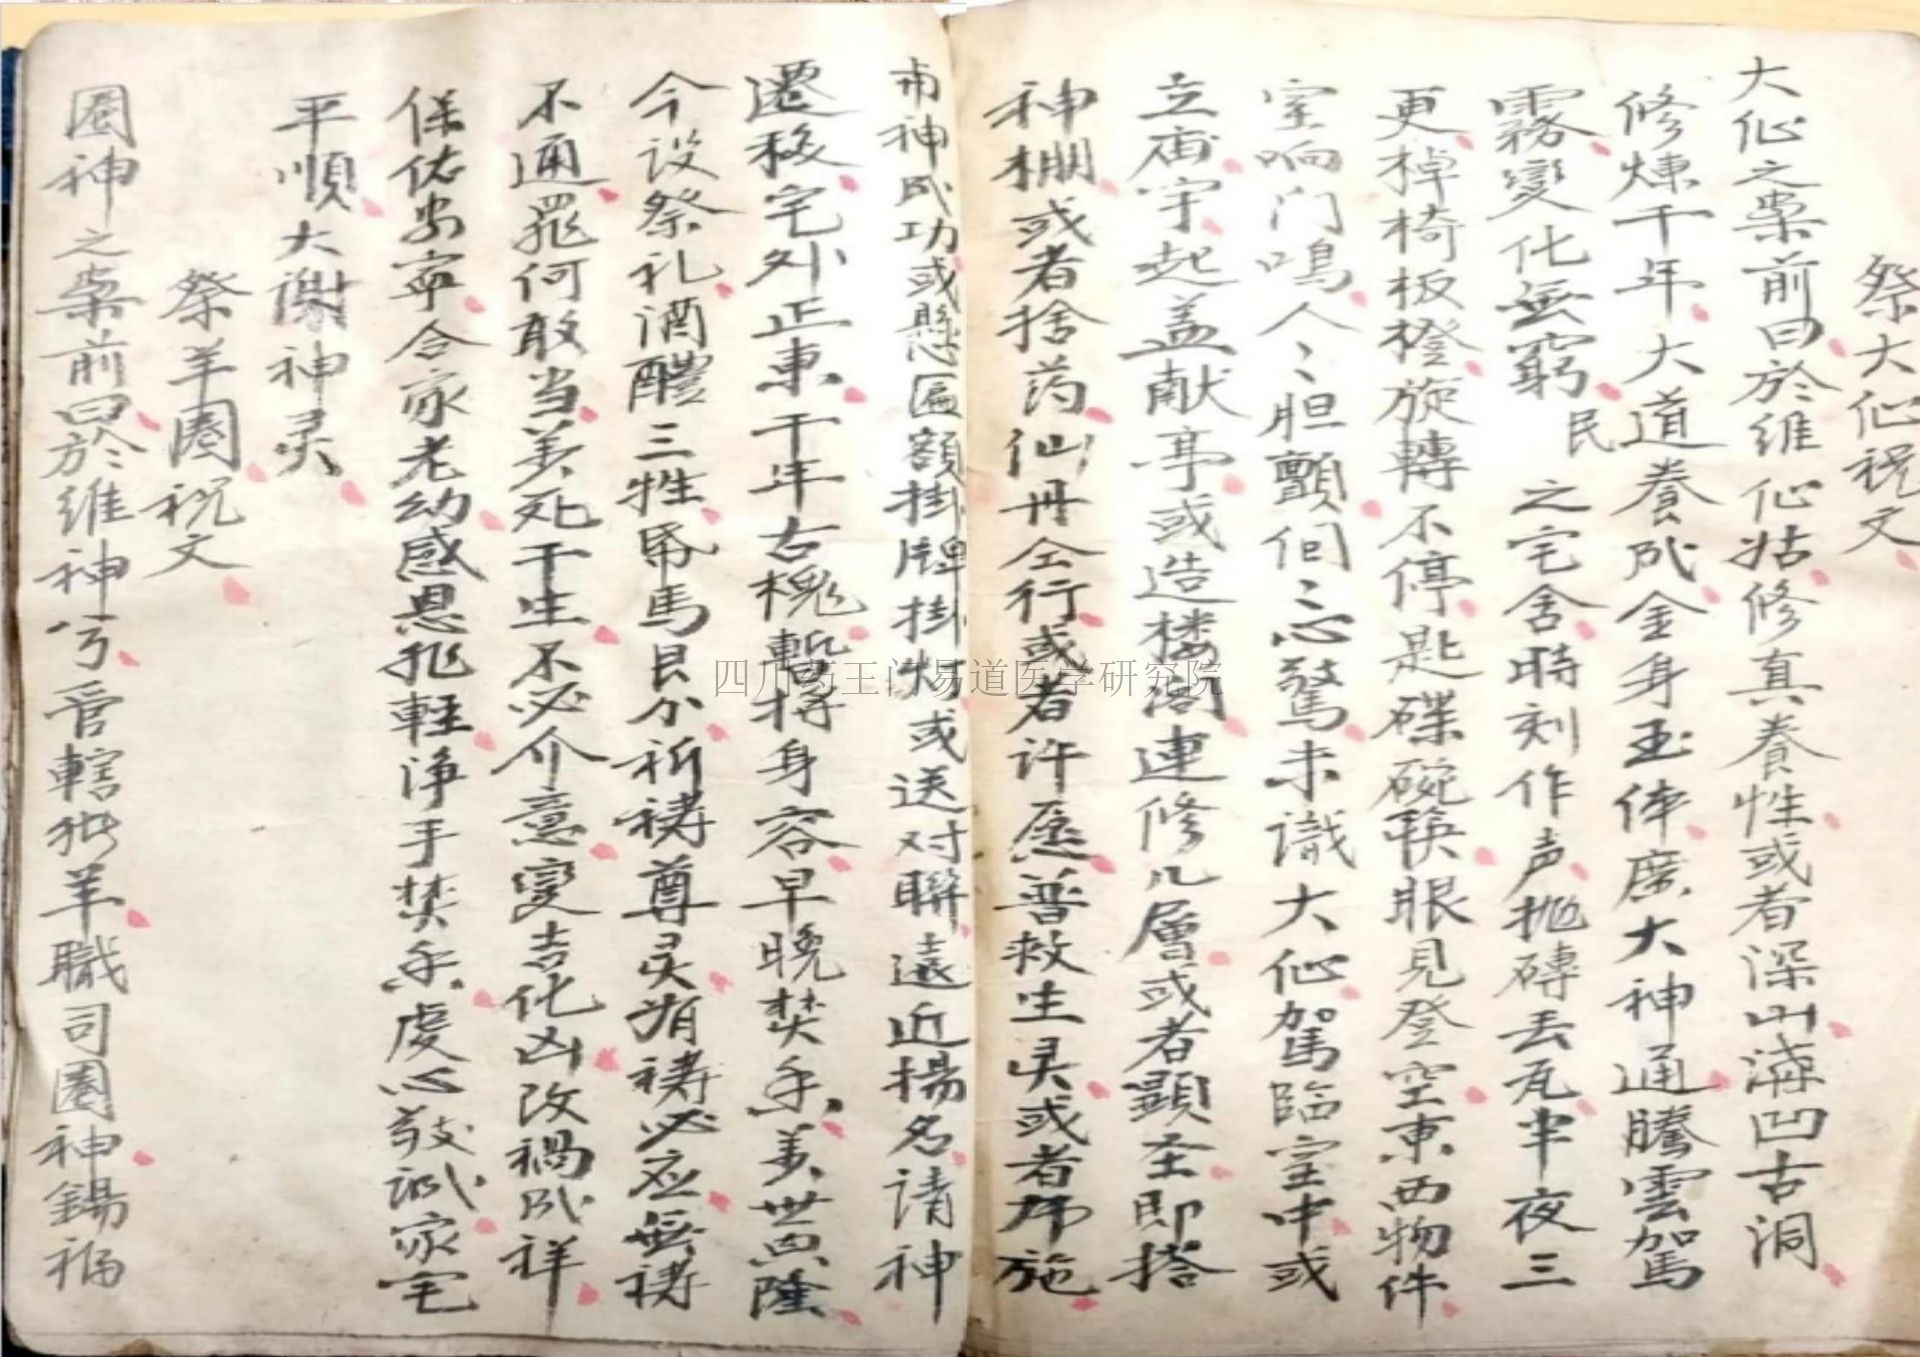 祭大仙祝文
大仙之案前曰於維仙姑修真養性或者深山溝凹古洞
修煉千年大道養成金身玉体廣大神通騰雲駕
霧變化無窮民 之宅舍時刻作声抛磚丢瓦半夜三
更棹椅板橙旋轉不停匙碟碗筷眼見登空東西物件
室响门鳴人〻胆顫個〻心驚未識大仙駕臨室中或
立庙宇起盖献亭或造楼阁連修几層或者顯圣即搭
神棚或者捨药仙丹全行或者许愿普救生灵或者佈施
神成功或懸匾額掛牌掛灯或送对聯遠近揚名请神
遷移宅外正東千年古槐暫將身容早晚焚香善世兴隆
今设祭礼酒醴三牲帛馬艮分祈禱尊灵有禱必应無禱
不通罪何敢当善死干生不必介意变吉化凶改禍成祥
保佑安寧合家老幼感恩非輕净手焚香虔心敬诚家宅
平順大謝神灵
祭羊圈祝文
圈神之案前曰於維神兮管轄牧羊職司圈神錫福
四川药王门易道医学研究院